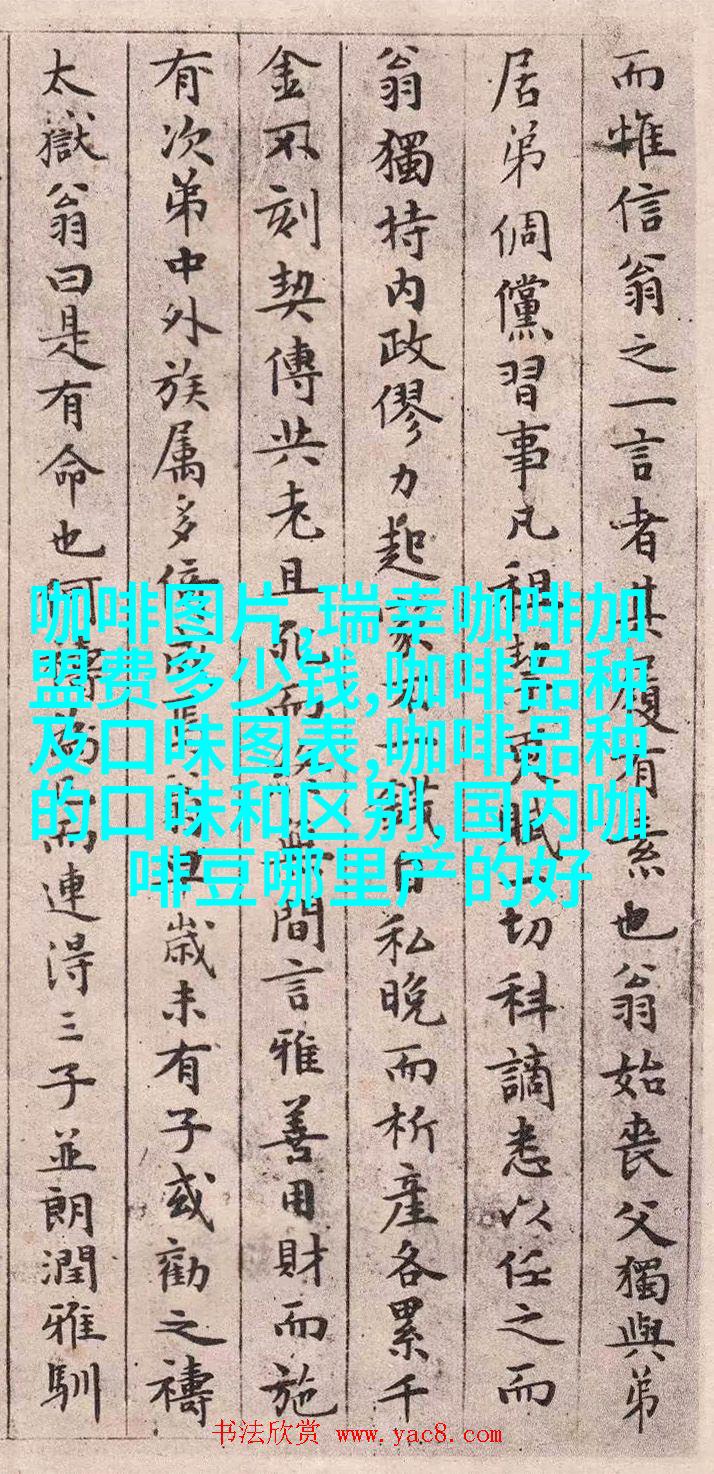 而惟信翁之一言者其履有素也翁始喪父獨與弟
居弟倜儻習事凡租挈更賦一切科謫悉以任之而
翁獨持内政僇力起家一錢自私晚而析產各累千
金不刻契傳共老且死而無間言雅善用財而施
有次弟中外族属多歲未有子或勸之禱
太嶽翁曰是有命也何禱為而連得三子並朗潤雅馴
咖啡图片,瑞幸咖啡加
盟费多少钱,咖啡品种
及口味图表,咖啡品种
的口味和区别,国内咖
啡豆哪里产的好
书法欣赏 www.yac8.com